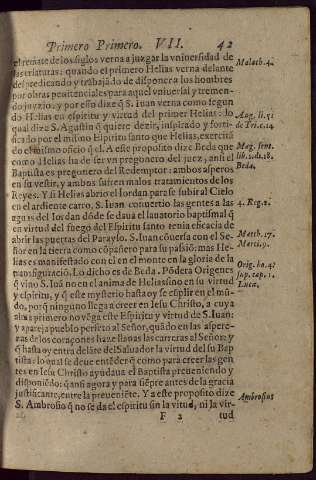 Primero Primero. VII. 42
el remate de los siglos verna a juzgar la vniuersidad de
las criaturas: quando el primero Helias verna delante
del predicando y trabajãdo de disponer a los hombres
por obras penitenciales para aquel vniuersal y tremen-
do juyzio. y por esso dize q̃ S. Iuan verna como segun
do Helias en espiritu y virtud del primer Helias: lo
qual dize S. Agustin q̃ quiere dezir, inspirado y forti-
ficado por el mismo Espiritu santo que Helias, exercitã
do el mismo oficio q̃ el. A este proposito dize Beda que
como Helias ha de ser vn pregonero del juez, ansi el
Baptista es pregonero del Redemptor: ambos asperos
en su vestir, y ambos sufren malos tratamientos de los
Reyes. Y si Helias abrio el Iordan para se subir al Cielo
en el ardiente carro, S. Iuan conuertio las gentes a las
aguas del Iordan dõde se daua el lauatorio baptismal q̃
en virtud del fuego del Espiritu santo tenia eficacia de
abrir las puertas del Parayso. S. Iuan cõuersa con el Se-
ñor en la tierra como cõpañero para su passiõ: mas He-
lias es manifestado con el en el monte en la gloria de la
transfiguraciõ. Lo dicho es de Beda. Põdera Origenes
q̃ vino S. Iuã no en el anima de Helias sino en su virtud
y espiritu, y q̃ este mysterio hasta oy se cũple en el mũ-
do, porq̃ ninguno llega a creer en Iesu Christo, a cuya
alma primero no vẽga este Espiritu y virtud de S. Iuan:
y apareja pueblo perfeto al Señor, quãdo en las aspere-
zas de los coraçones haze llanas las carreras al Señor: y
q̃ hasta oy entra delãte del Saluador la virtud del su Bap
tista: lo qual se deue entẽder q̃ como para creer las gen
tes en Iesu Christo ayudaua el Baptista preueniendo y
disponiẽdo: q̃ ansi agora y para siẽpre antes de la gracia
justificante, entre la preueniẽte. Y a este proposito dize
S. Ambrosio q̃ no se da el espiritu sin la virtud, ni la vir-
F 2 tud
Malach. 4.
Aug. li. 5.
de Tri. c. 14
Mag. sent.
lib. 1. ds. 18.
Beda.
4. Reg. 2.
Matth. 17.
Marci. 9.
Orig. ho. 4.
sup. cap. 1.
Lucæ.
Ambrosius